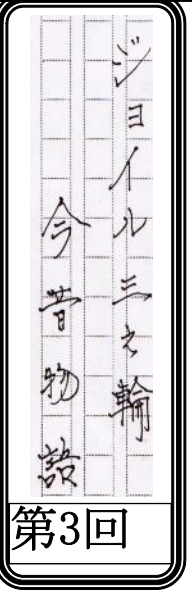 ジョイル三之輪
今昔物語
第3回